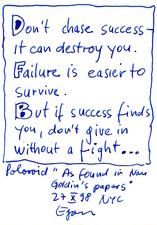 Don't chase success —
it can destroy you.
Failure is easier to
survive.
But if success finds
you, don't give in
without a fight...
Polaroid "As found in Nan
Goldin's papers"
27 X 98 NYC